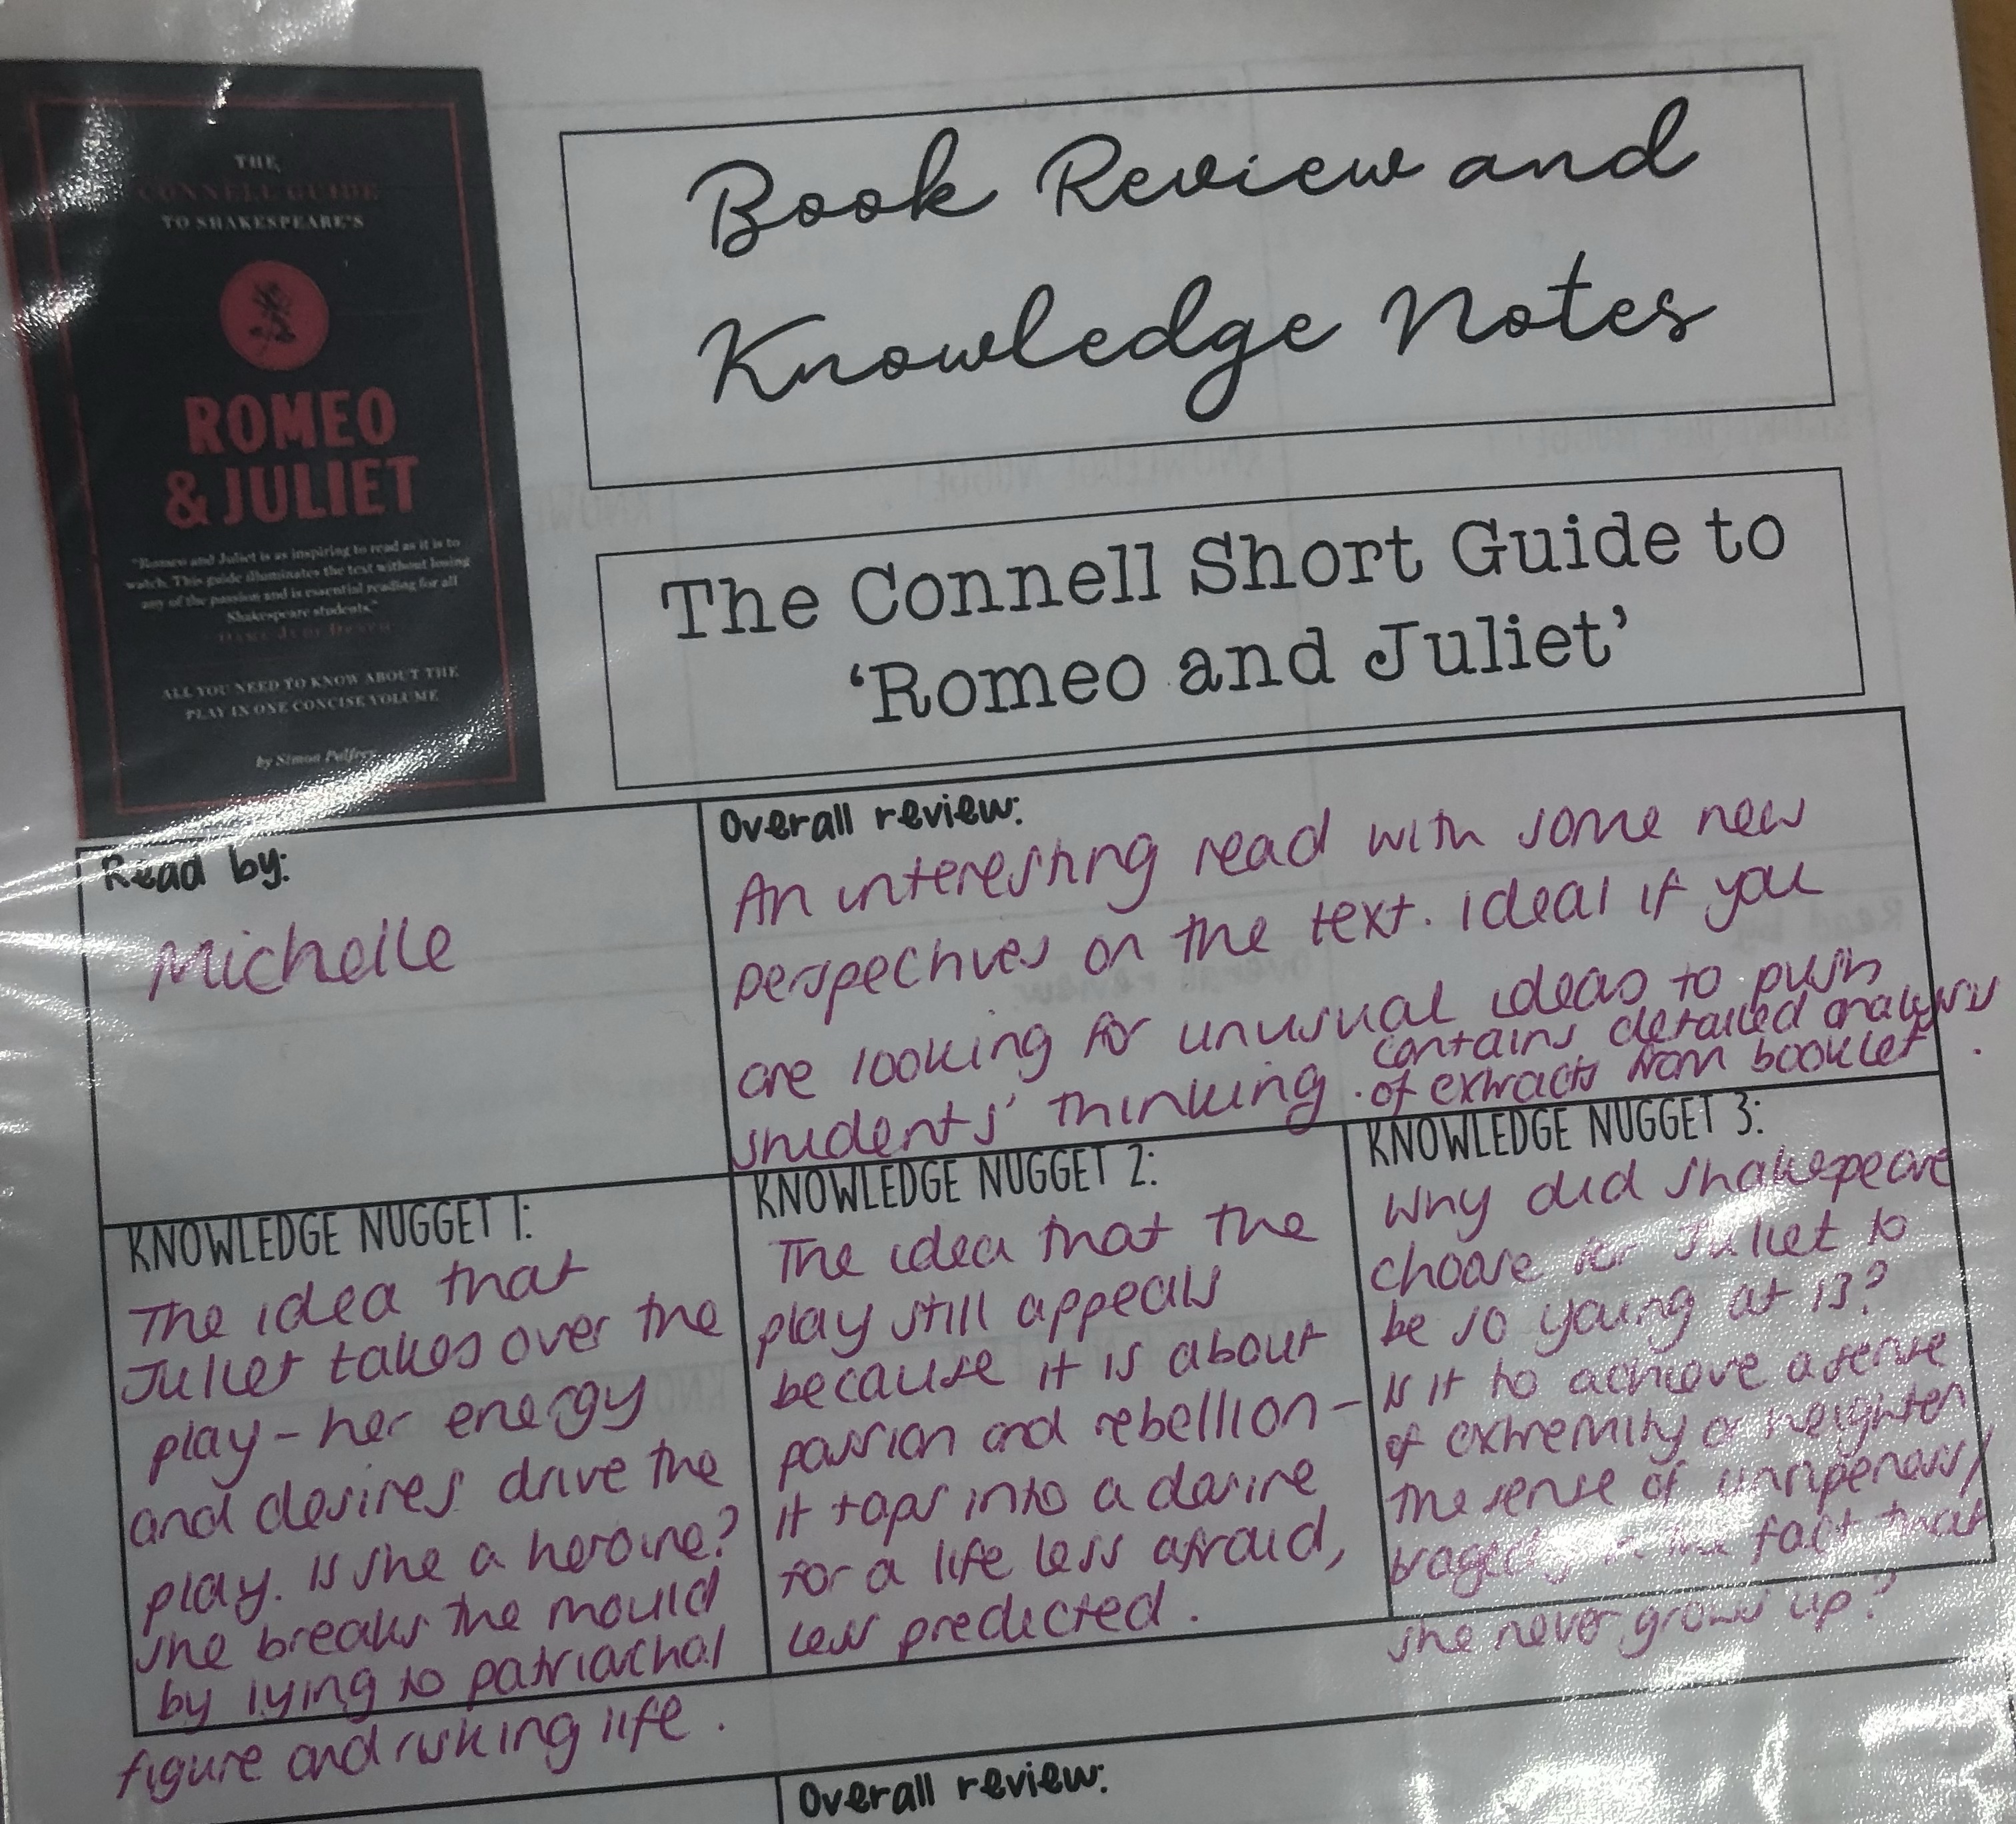 THE
CONNELL GUIDE
TO SHAKESPEARE'S
ROMEO
& JULIET
"Romeo and Juliet is as inspiring to read as it is to
watch. This guide illuminates the text without losing
any of the passion and is essential reading for all
Shakespeare students."
DAME JUDI DENCH
ALL YOU NEED TO KNOW ABOUT THE
PLAY IN ONE CONCISE VOLUME
by Simon Palfrey
Book Review and
Knowledge Notes
The Connell Short Guide to
‘Romeo and Juliet’
Read by:
Michelle
Overall review:
An interesting read with some new
perspectives on the text. ideal if you
are looking for unusual ideas to push
students' thinking. contains detailed analysis
of extracts from booklet.
KNOWLEDGE NUGGET 1:
The idea that
Juliet takes over the
play - her energy
and desires drive the
play. Is she a heroine?
she breaks the mould
by lying to patriarchal
figure and risking life.
KNOWLEDGE NUGGET 2:
The idea that the
play still appeals
because it is about
passion and rebellion -
it taps into a desire
for a life less afraid,
less predicted.
KNOWLEDGE NUGGET 3:
Why did Shakespeare
choose for Juliet to
be so young at 13?
Is it to achieve a sense
of extremity or heighten
the sense of unripeness/
tragedy in the fact that
she never grows up?
Overall review: